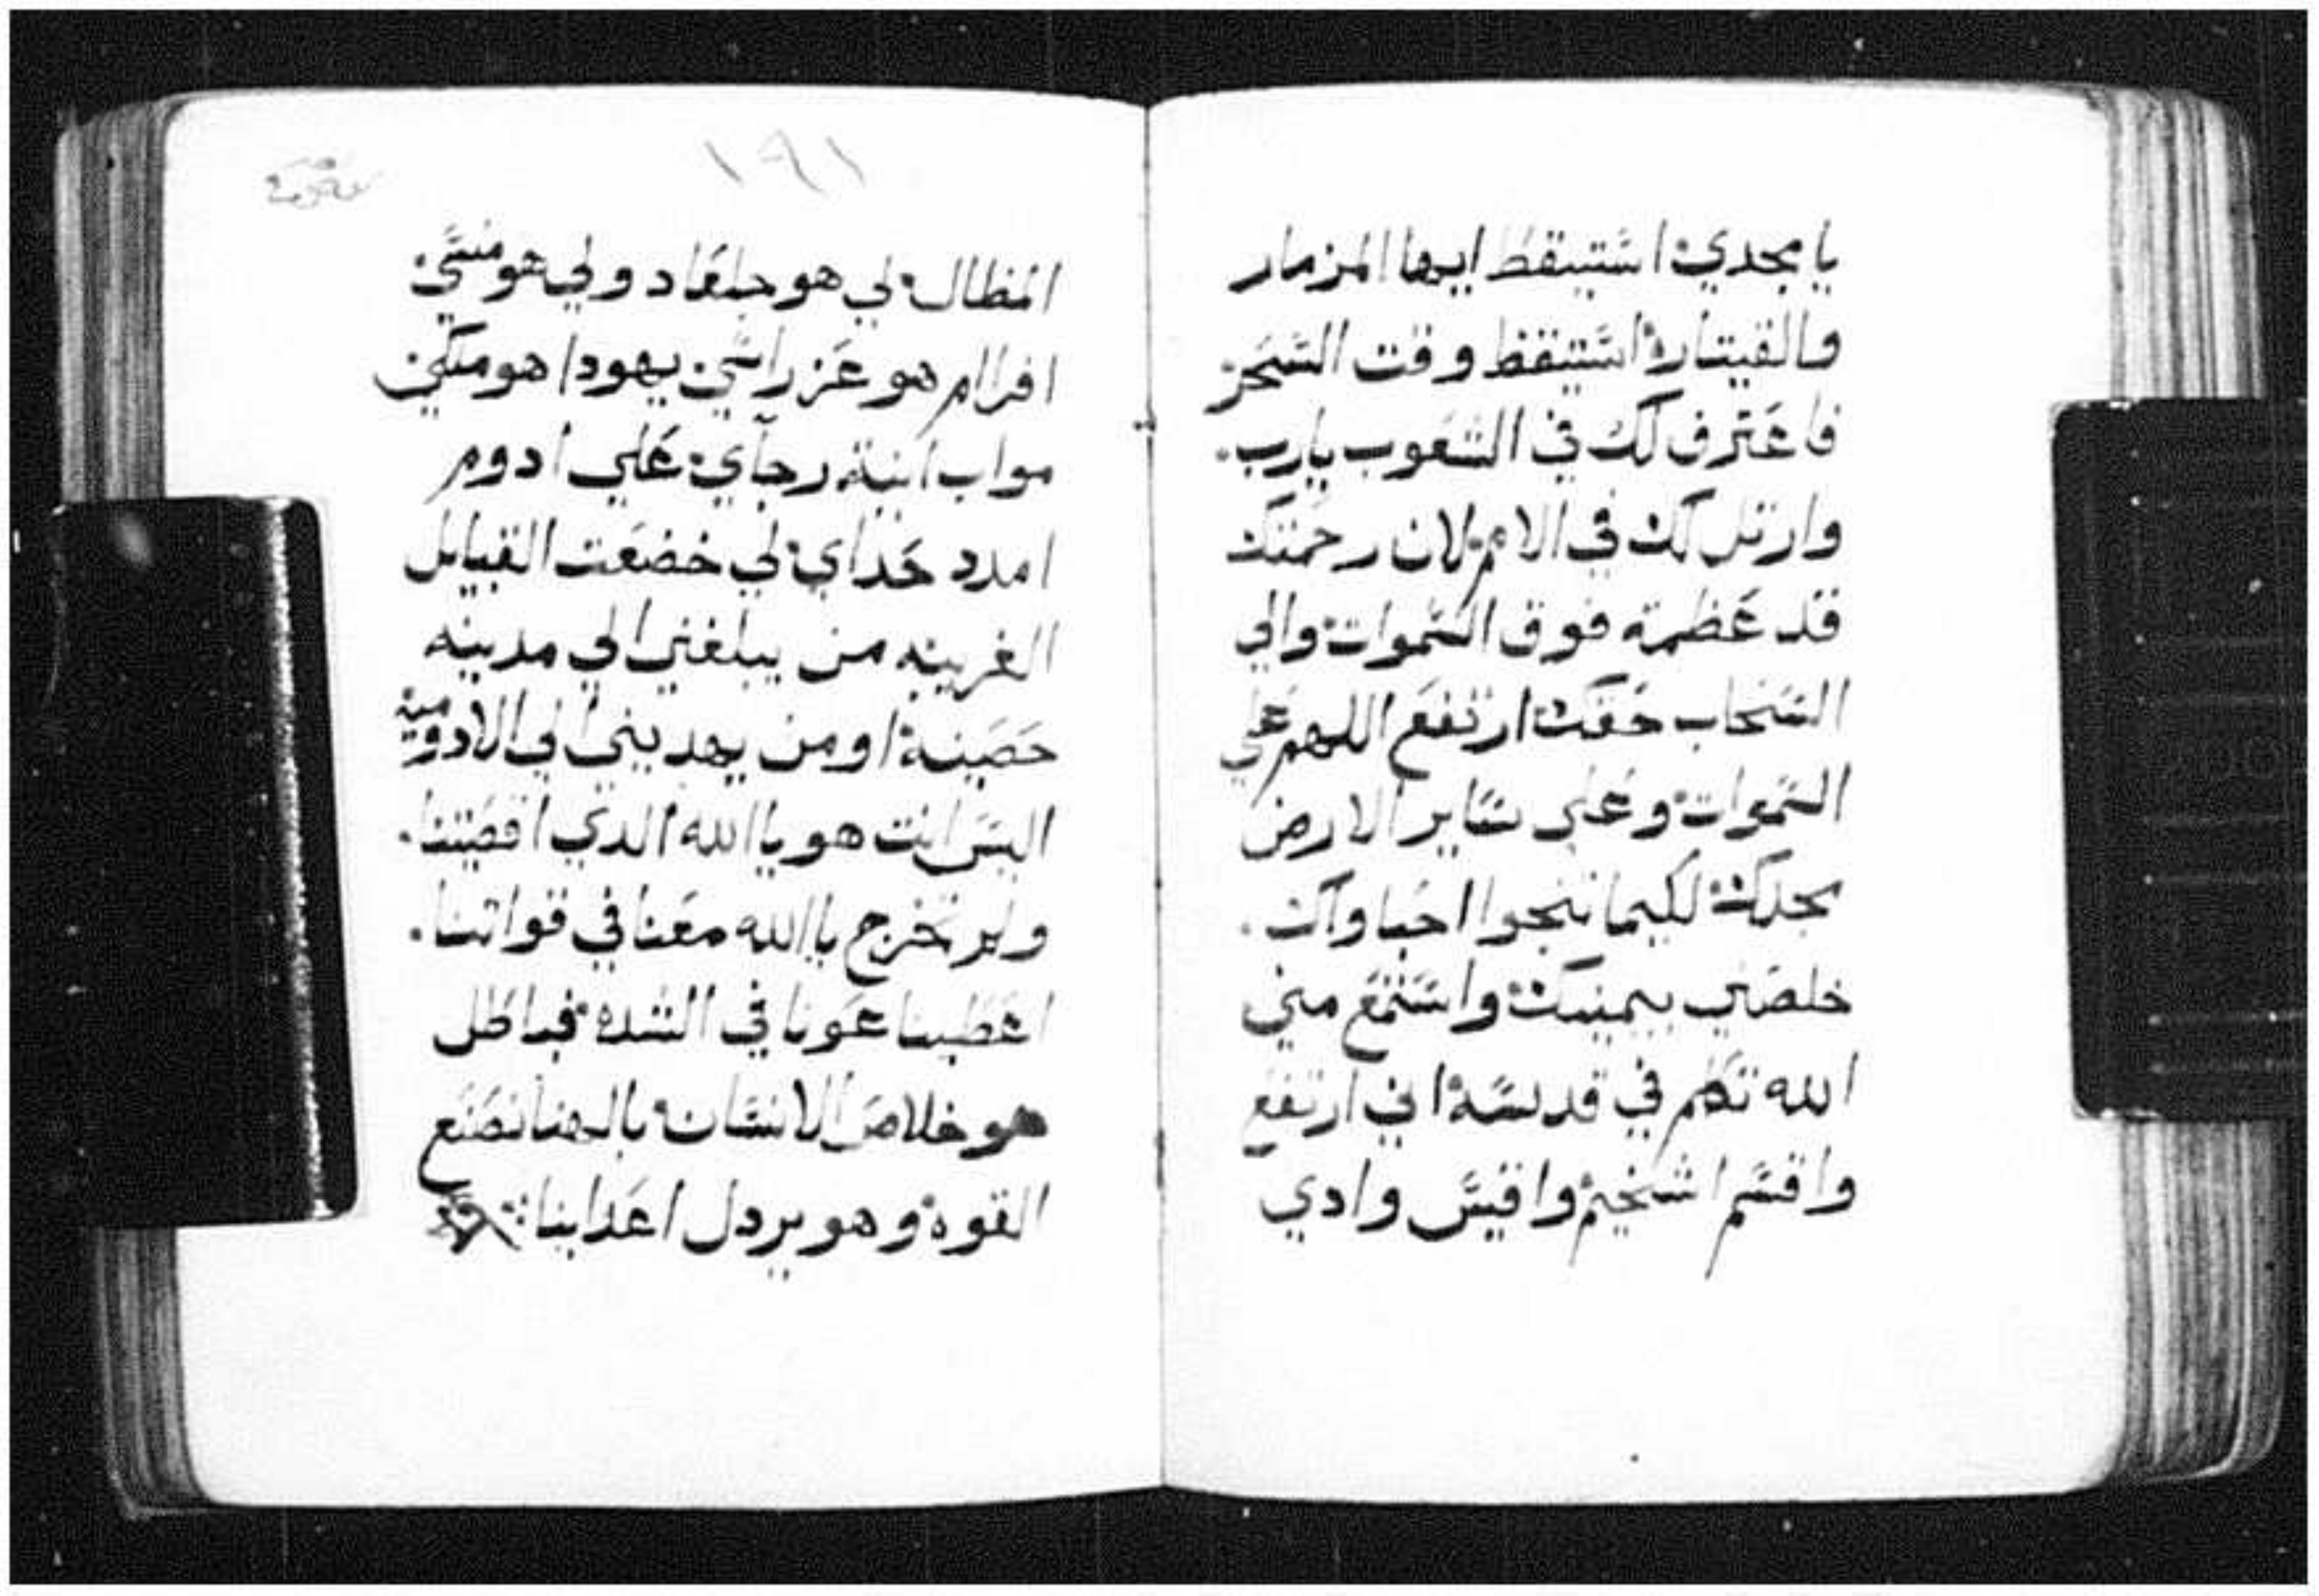 يا مجدي استيقظ ايها المزمار
والقيتارة استيقظ وقت السحر
فاعترف لك في الشعوب يارب.
وارتل لك في الامم لان رحمتك
قد عظمة فوق السموات والي
السحاب حقك ارتفع اللهم علي
السموات وعلي ساير الارض
مجدك لكيما تنجوا احباوك.
خلصني بيمينك واستمع مني
الله تكلم في قدسه اني ارتفع
واقسم اشخيم واقيس وادي
١٩١
المظال لي هو جلعاد ولي هو منسي
افراام هو عز راسي يهودا هو ملكي
مواب انية رجاي علي ادوم
امدد حداي لي خضعت القبايل
الغريبه من يبلغني الي مدينه
حصينة او من يهديني الي الادومية
اليس انت هو ياالله الدي اقصيتنا.
ولم تخرج ياالله معنا في قواتنا.
اعطينا عونا في الشده فباطل
هو خلاص الانسان بالهنا نصنع
القوة وهو يردل اعداينا